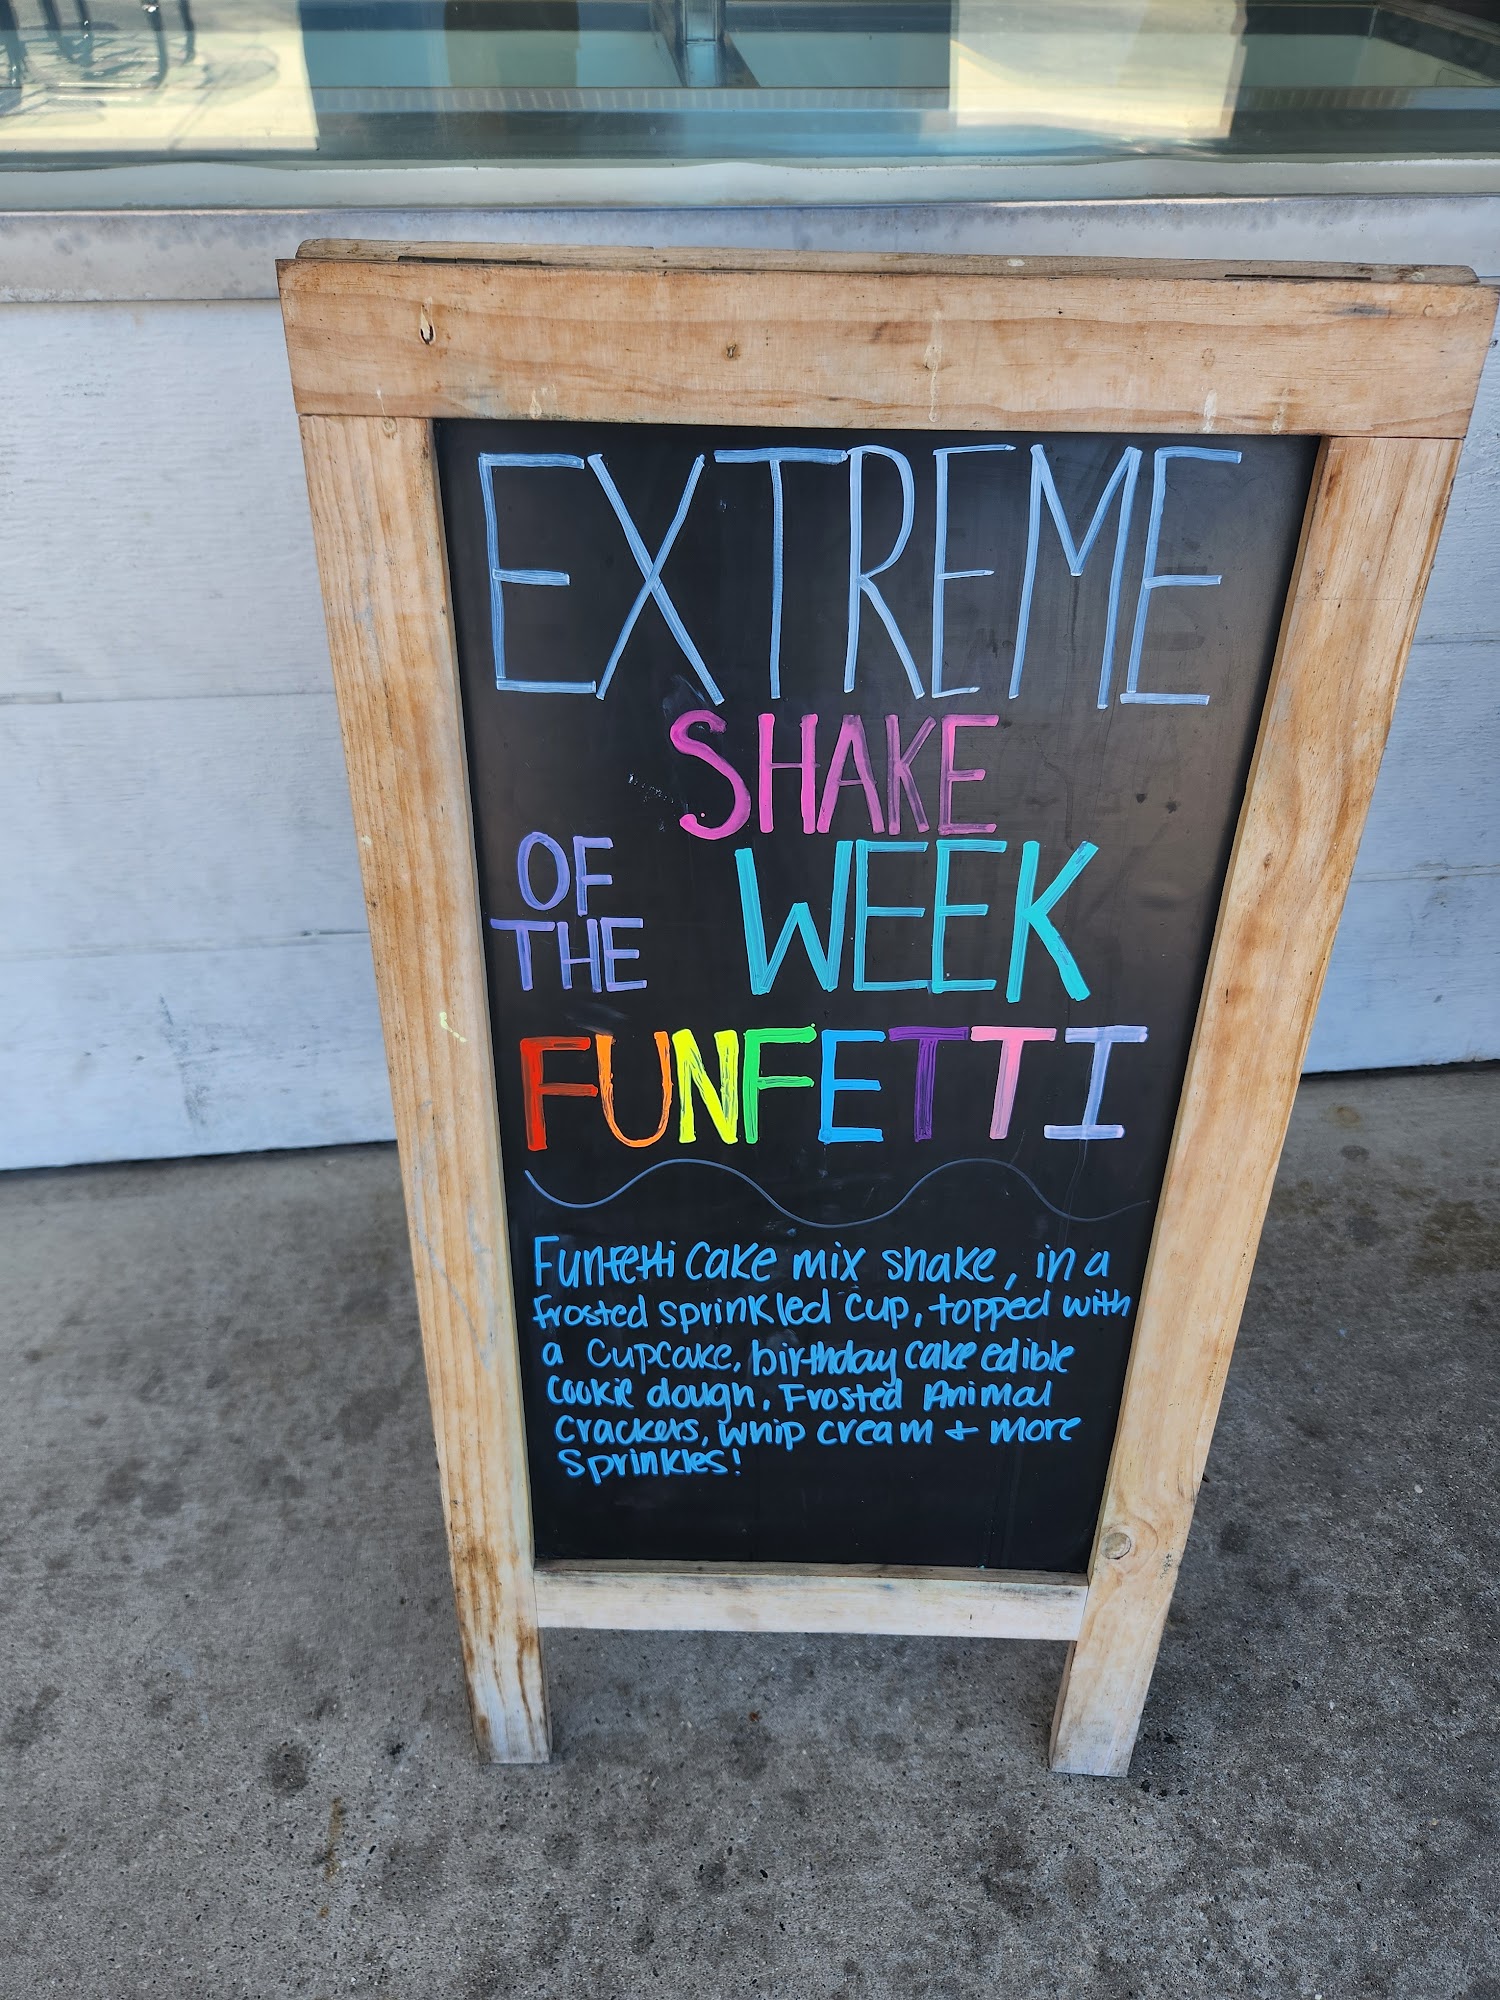 EXTREME
SHAKE
OF THE WEEK
FUNFETTI
Funfetti cake mix shake, in a
frosted sprinkled cup, topped with
a cupcake, birthday cake edible
cookie dough, Frosted Animal
crackers, whip cream + more
sprinkles!